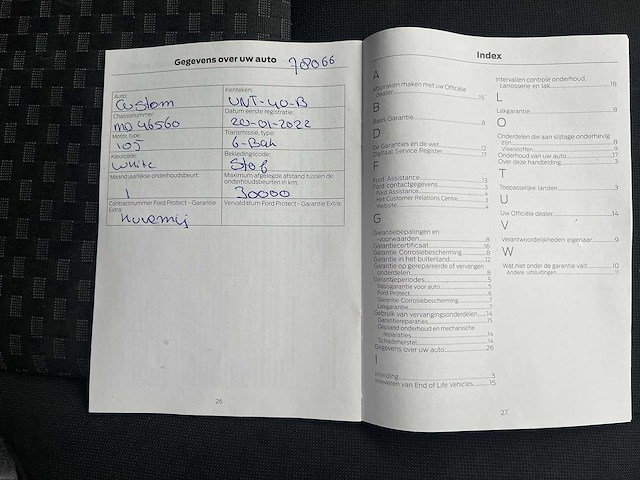 Gegevens over uw auto 78066
Auto: Kenteken:
Custom VNT-40-B
Chassisnummer: Datum eerste registratie:
MD 46560 20-01-2022
Motor, type: Transmissie, type:
105 6-Bak
Kleurcode: Bekledingscode:
white Stof
Maand jaarlijkse onderhoudsbeurt: Maximum afgelegde afstand tussen de
onderhoudsbeurten in km:
1 30000
Contractnummer Ford Protect - Garantie Vervaldatum Ford Protect - Garantie Extra:
Extra:
26
Index
A
Afspraken maken met uw Officiële
dealer 15
B
Basis Garantie 8
D
De Garanties en de wet 12
Digitaal Service Register 17
F
Ford Assistance 13
Ford contactgegevens 3
Ford Assistance 4
Het Customer Relations Centre 3
Website 4
G
Garantiebepalingen en
voorwaarden 8
Garantiecertificaat 16
Garantie Corrosiebescherming 8
Garantie in het buitenland 12
Garantie op gerepareerde of vervangen
onderdelen 8
Garantieperiodes 5
Basisgarantie voor auto 5
Ford Protect 6
Garantie Corrosiebescherming 7
Lakgarantie 7
Gebruik van vervangingsonderdelen 14
Garantiereparaties 15
Gepland onderhoud en mechanische
reparaties 14
Schadeherstel 14
Gegevens over uw auto 26
I
Inleiding 3
Inleveren van End of Life Vehicles 15
Intervallen controle onderhoud,
carrosserie en lak 18
L
Lakgarantie 8
O
Onderdelen die aan slijtage onderhevig
zijn 8
Vloeistoffen 9
Onderhoud van uw auto 17
Over deze handleiding 3
T
Toepasselijke landen 3
U
Uw Officiële dealer 14
V
Verantwoordelijkheden eigenaar 9
W
Wat niet onder de garantie valt 10
Andere uitsluitingen 11
27